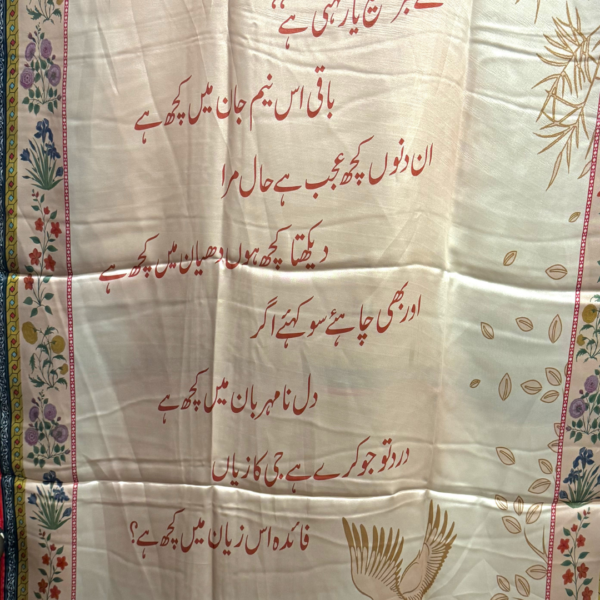 ہی ہے
باقی اس نیم جان میں کچھ ہے
ان دنوں کچھ عجب ہے حال مرا
دیکھتا کچھ ہوں دھیان میں کچھ ہے
اور بھی چاہئے سو کہئے اگر
دل نامہربان میں کچھ ہے
درد تو جو کرے ہے جی کا زیاں
فائدہ اس زیان میں کچھ ہے؟